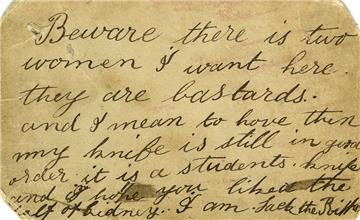 Beware there is two
women I want here.
they are bastards.
and I mean to have them
my knife is still in good
order. it is a students knife
and I hope you liked the
half of kidney. I am Jack the Ripper